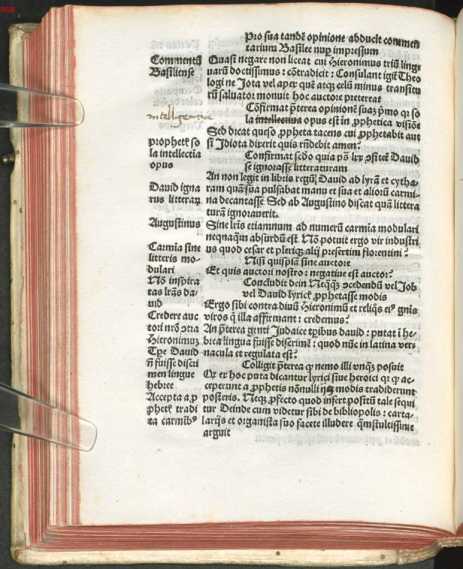 Pro sua tandē opinione abducit commen
tarium Basilee nup impressum
Commentū
Basiliense
Quasi negare non liceat cui Hieronimus triū lingu
uarū doctissimus : cōtradicit : Consulant igit Theo
logi ne Jota vel apex quē atqz celū minus transitu
rū saluator monuit hoc auctore pretereat
Cōfirmat pterea opinionē suaz pmo qr so
la intellectiua opus est in pphetica visiōe
intelligentie
Sed dicat queso ppheta tacens cui pphetabit aut
si Idiota dixerit quis rñdebit amen?
prophetis so
la intellectia
opus
Confirmat scdo quia David
se ignorasse litteraturam
An non legit in libris regū David ad lyrā et cytha
ram quā sua pulsabat manu et sua et aliorū carmi
na decantasse Sed ab Augustino discat quā littera
turā ignorauerit.
David igna
rus litterarū
Augustinus
Sine lris etiamnum ad numerū carmīa modulari
neqnaqm absurdū est Nō potuit ergo vir industri
us quod cesar et pleriqz alij presertim florentini?
Nisi quispiā sine auctore
Carmīa sine
litteris mo-
dulari
Et quis auctori nostro : negatiue est auctor?
Concludit dein Neqz cedendū vel Job
vel David lyrice pphetasse modis
Nō inspira
tas lrās da-
uid
Ergo sibi contra diuū Hieronimū et reliqs eis gnis
viros q illa affirmant : credemus?
Credere auc
tori nrō
Hieronimus
An pterea genti Judaice tpibus david : putat ī he-
brica lingua fuisse discrimē : quod nūc in latina ver
nacula et regulata est?
Tpe David
ñ fuisse discri
men lingue
hebree
Colligit pterea qr nemo illi vnqz posuit
Qr er hoc puta dicantur lyrici siue heroici qr ac-
ceperunt a pphetis nōnulli modis tradiderunt
posteris. Neqz pfecto quod infert positū tale sequi
tur Deinde cum videtur sibi de bibliopolis : carta-
larijs et organista suo facete illudere qmstultissime
arguit
Accepta a p
phetis tradi
ta carmīb